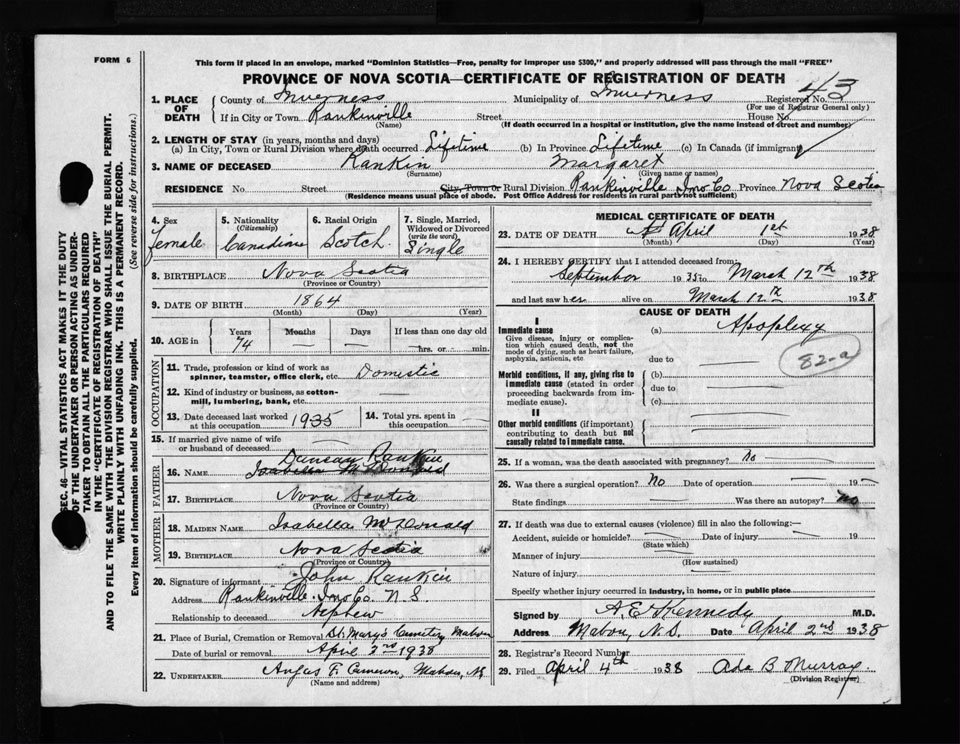 FORM 6
This form if placed in an envelope, marked "Dominion Statistics—Free, penalty for improper use $300," and properly addressed will pass through the mail "FREE"
PROVINCE OF NOVA SCOTIA—CERTIFICATE OF REGISTRATION OF DEATH
SEC. 46—VITAL STATISTICS ACT MAKES IT THE DUTY
OF THE UNDERTAKER OR PERSON ACTING AS UNDER-
TAKER TO OBTAIN ALL THE PARTICULARS REQUIRED
IN THE "CERTIFICATE OF REGISTRATION OF DEATH"
AND TO FILE THE SAME WITH THE DIVISION REGISTRAR WHO SHALL ISSUE THE BURIAL PERMIT.
WRITE PLAINLY WITH UNFADING INK. THIS IS A PERMANENT RECORD.
Every item of information should be carefully supplied. (See reverse side for instructions.)
1. PLACE OF DEATH County of Inverness Municipality of Inverness Registered No. 43
(For use of Registrar General only)
If in City or Town Rankinville Street House No.
(Name) (If death occurred in a hospital or institution, give the name instead of street and number)
2. LENGTH OF STAY (in years, months and days)
(a) In City, Town or Rural Division where death occurred Lifetime (b) In Province Lifetime (c) In Canada (if immigrant)
3. NAME OF DECEASED Rankin Margaret
(Surname) (Given name or names)
RESIDENCE No. Street City, Town or Rural Division Rankinville Inv Co Province Nova Scotia
(Residence means usual place of abode. Post Office Address for residents in rural parts not sufficient)
4. Sex female
5. Nationality (Citizenship) Canadian
6. Racial Origin Scotch
7. Single, Married, Widowed or Divorced (write the word) Single
8. BIRTHPLACE Nova Scotia
(Province or Country)
9. DATE OF BIRTH 1864
(Month) (Day) (Year)
10. AGE in Years 74 Months — Days — If less than one day old —hrs. or —min.
OCCUPATION
11. Trade, profession or kind of work as spinner, teamster, office clerk, etc. Domestic
12. Kind of industry or business, as cotton-mill, lumbering, bank, etc.
13. Date deceased last worked at this occupation 1935
14. Total yrs. spent in this occupation
15. If married give name of wife or husband of deceased
FATHER
Duncan Rankin
16. NAME Isabella McDonald
17. BIRTHPLACE Nova Scotia
(Province or Country)
MOTHER
18. MAIDEN NAME Isabella McDonald
19. BIRTHPLACE Nova Scotia
(Province or Country)
20. Signature of informant John Rankin
Address Rankinville Inv Co. N.S.
Relationship to deceased Nephew
21. Place of Burial, Cremation or Removal St. Mary's Cemetery Mabou
Date of burial or removal April 3rd 1938
22. UNDERTAKER Angus F. Cameron, Mabou, N.S
(Name and address)
MEDICAL CERTIFICATE OF DEATH
23. DATE OF DEATH April 1st 1938
(Month) (Day) (Year)
24. I HEREBY CERTIFY that I attended deceased from:
September 1935 to March 12th 1938
and last saw her alive on March 12th 1938
CAUSE OF DEATH
I
Immediate cause (a) Apoplexy
Give disease, injury or complication which caused death, not the mode of dying, such as heart failure, asphyxia, asthenia, etc.
due to
82-a
Morbid conditions, if any, giving rise to immediate cause (stated in order proceeding backwards from immediate cause).
(b)
due to
(c)
II
Other morbid conditions (if important) contributing to death but not causally related to immediate cause.
25. If a woman, was the death associated with pregnancy? No
26. Was there a surgical operation? No Date of operation 19
State findings Was there an autopsy? No
27. If death was due to external causes (violence) fill in also the following:—
Accident, suicide or homicide? Date of injury 19
(State which)
Manner of injury
(How sustained)
Nature of injury
Specify whether injury occurred in industry, in home, or in public place
Signed by A E Kennedy M.D.
Address Mabou, N.S. Date April 2nd 1938
28. Registrar's Record Number
29. Filed April 4th 1938 Ada B Murray
(Division Registrar)